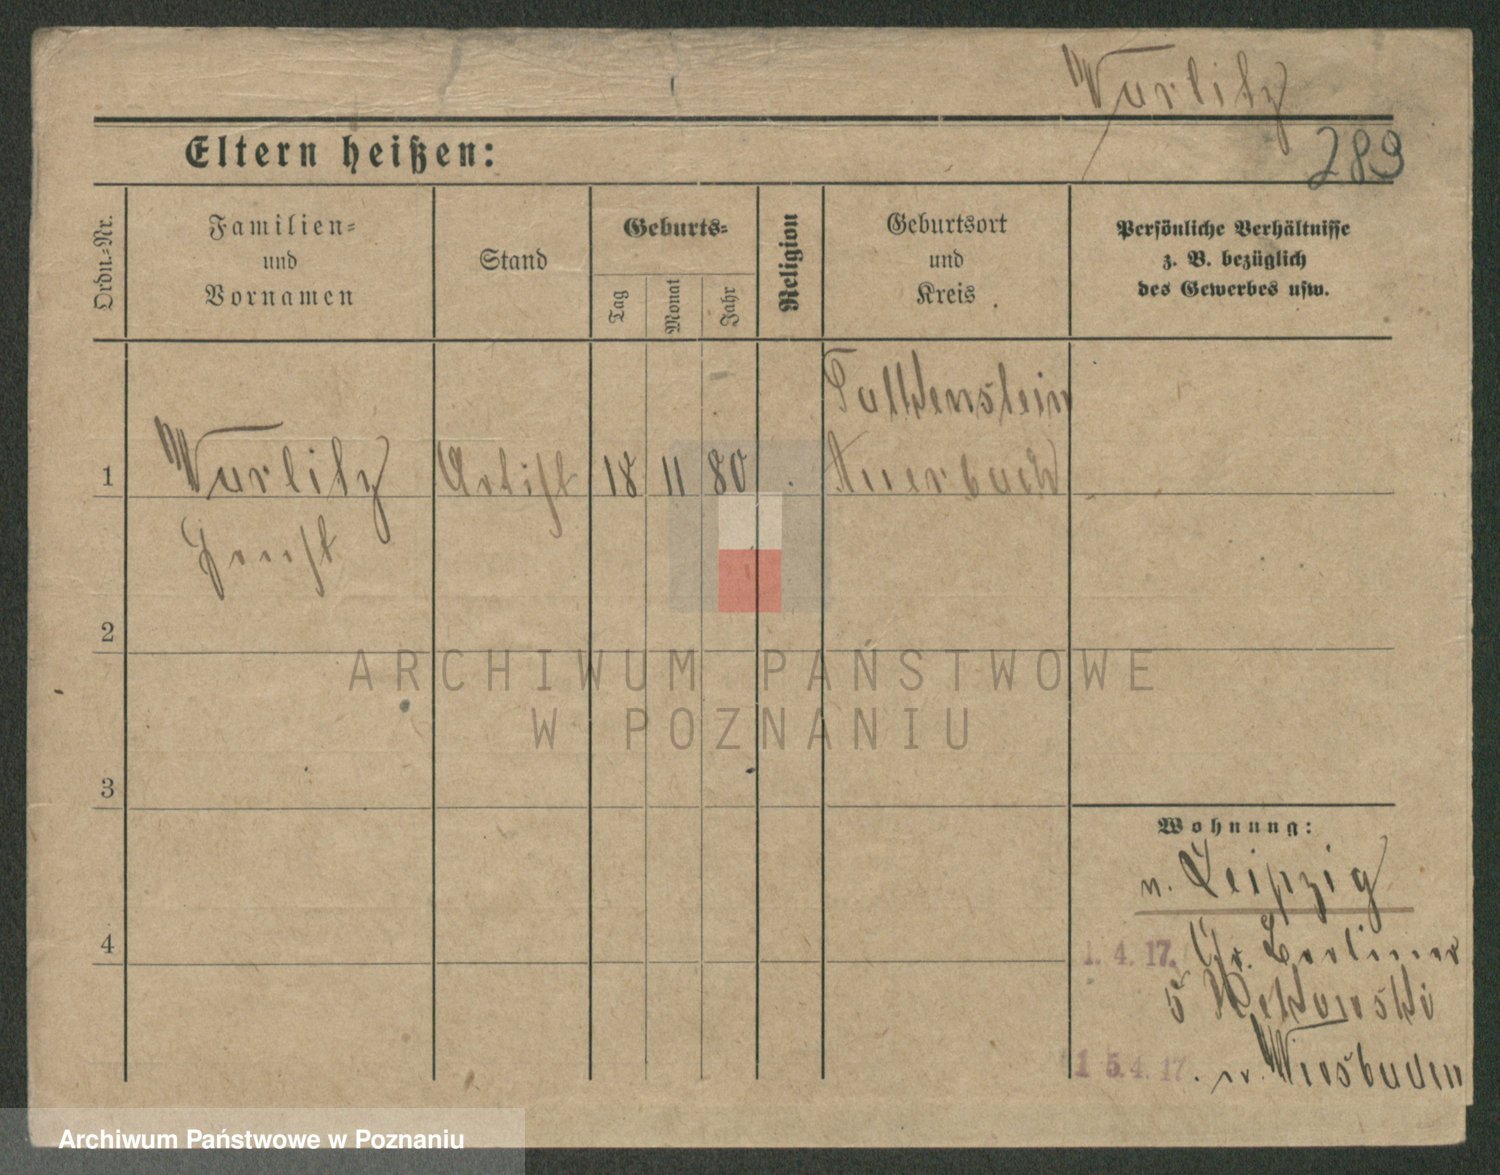 Wurlitz
289
Eltern heißen:
Ordn.-Nr.
Familien-
und
Vornamen
Stand
Geburts-
Tag
Monat
Jahr
Religion
Geburtsort
und
Kreis
Persönliche Verhältnisse
z. B. bezüglich
des Gewerbes usw.
1
Wurlitz
Artist
18
11
80
Falkenstein
Auerbach
Ernst
2
3
4
Wohnung:
n. Leipzig
1. 4. 17. Gr. Berliner
5
15.4.17. n. Wiesbaden
ARCHIWUM PAŃSTWOWE
W POZNANIU
Archiwum Państwowe w Poznaniu